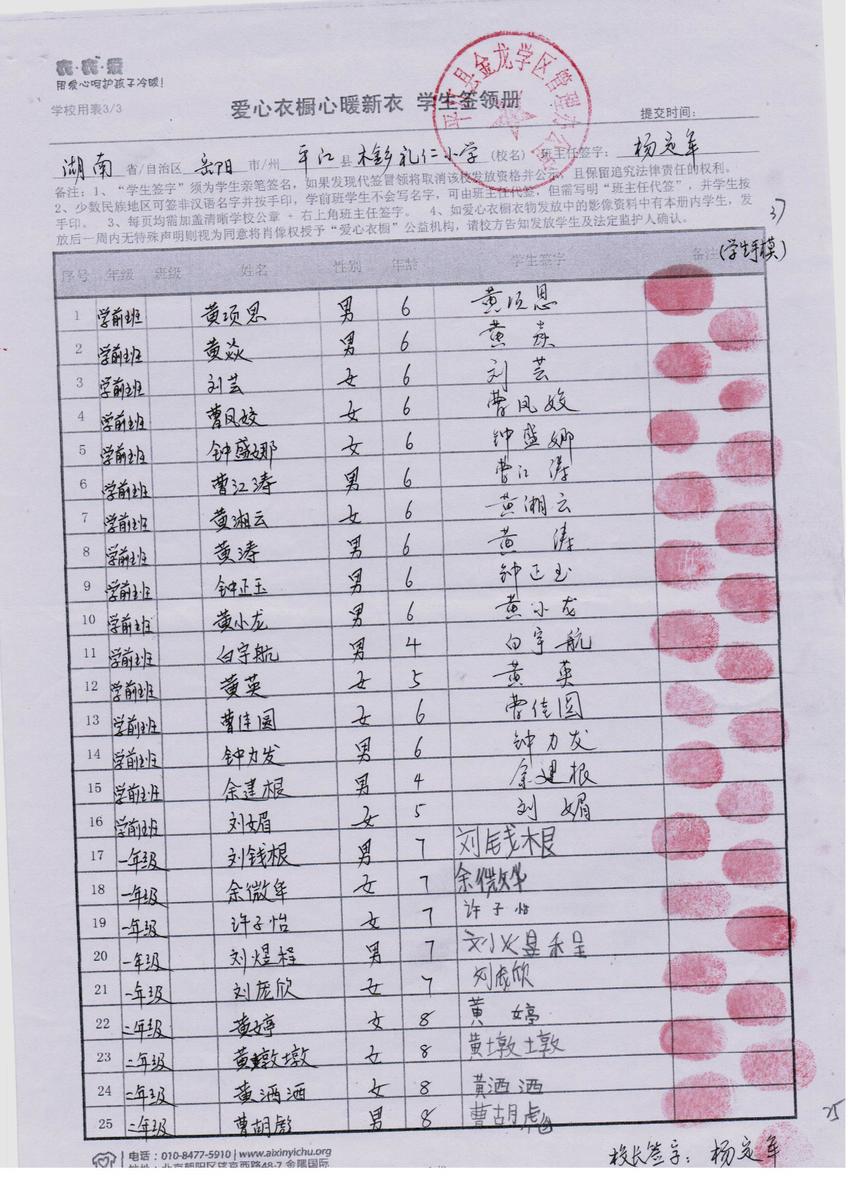 衣·衣·爱
用爱心呵护孩子冷暖!
学校用表3/3
爱心衣橱心暖新衣 学生签领册
提交时间:
金龙学区管理办公室
湖南 省/自治区 岳阳 市/州 平江 县 木金乡礼仁小学 (校名) 班主任签字: 杨定军
备注: 1、"学生签字"须为学生亲笔签名,如果发现代签冒领将取消该校发放资格并公示,且保留追究法律责任的权利。
2、少数民族地区可签非汉语名字并按手印,学前班学生不会写名字,可由班主任代签,但需写明"班主任代签",并学生按
手印。 3、每页均需加盖清晰学校公章 + 右上角班主任签字。 4、如爱心衣橱衣物发放中的影像资料中有本册内学生,发
放后一周内无特殊声明则视为同意将肖像权授予"爱心衣橱"公益机构,请校方告知发放学生及法定监护人确认。
37
序号 年级 班级 姓名 性别 年龄 学生签字 备注 (学生手模)
1 学前班 黄项思 男 6 黄项恩
2 学前班 黄焱 男 6 黄焱
3 学前班 刘芸 女 6 刘芸
4 学前班 曹凤姣 女 6 曹凤姣
5 学前班 钟盛娜 女 6 钟盛娜
6 学前班 曹江涛 男 6 曹江涛
7 学前班 黄湘云 女 6 黄湘云
8 学前班 黄涛 男 6 黄涛
9 学前班 钟正玉 男 6 钟正玉
10 学前班 黄小龙 男 6 黄小龙
11 学前班 白宇航 男 4 白宇航
12 学前班 黄英 女 5 黄英
13 学前班 曹佳圆 女 6 曹佳圆
14 学前班 钟力发 男 6 钟力发
15 学前班 余建根 男 4 余建根
16 学前班 刘媚 女 5 刘媚
17 一年级 刘钱根 男 7 刘钱根
18 一年级 余微华 女 7 余微华
19 一年级 许子怡 女 7 许子怡
20 一年级 刘煜程 男 7 刘煜程
21 一年级 刘庞欣 女 7 刘庞欣
22 二年级 黄婷 女 8 黄婷
23 二年级 黄墩墩 女 8 黄墩墩
24 二年级 黄洒洒 女 8 黄洒洒
25 二年级 曹胡彪 男 8 曹胡彪
25
电话:010-8477-5910 | www.aixinyichu.org
校长签字: 杨定军